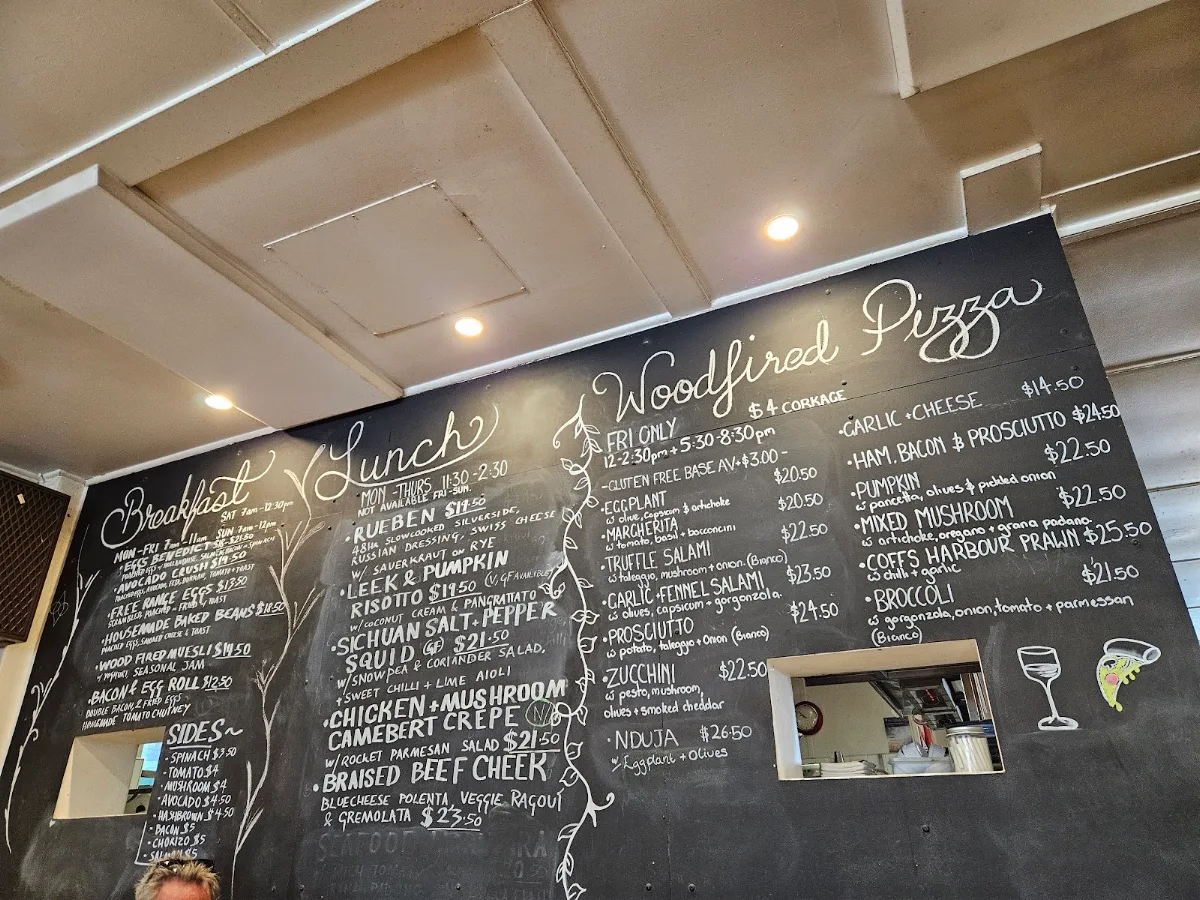 Breakfast
SAT 7am-12:30pm
MON-FRI 7am-11am SUN 7am-12pm
·EGGS BENEDICT
·AVOCADO CRUSH $19.50
·FREE RANGE EGGS $13.50
·HOUSEMADE BAKED BEANS $18.50
POACHED EGGS, SMOKED CHEESE & TOAST
·WOOD FIRED MUESLI $14.50
SEASONAL JAM
·BACON & EGG ROLL $12.50
DOUBLE BACON, 2 FRIED EGGS
HANDMADE TOMATO CHUTNEY
SIDES~
·SPINACH $3.50
·TOMATO $4
·MUSHROOM $4
·AVOCADO $4.50
·HASHBROWN $4.50
·BACON $5
·CHORIZO $5
Lunch
MON-THURS 11:30-2:30
NOT AVAILABLE FRI-SUN.
·RUEBEN $19.50
48HR SLOWCOOKED SILVERSIDE,
RUSSIAN DRESSING, SWISS CHEESE
W/ SAUERKRAUT ON RYE
·LEEK & PUMPKIN
RISOTTO $19.50 (V, GF AVAILABLE)
W/COCONUT CREAM & PANGRATTATO
·SICHUAN SALT + PEPPER
SQUID (GF) $21.50
W/SNOWPEA & CORIANDER SALAD,
SWEET CHILLI + LIME AIOLI
·CHICKEN + MUSHROOM
CAMEBERT CRÊPE
W/ROCKET PARMESAN SALAD $21.50
·BRAISED BEEF CHEEK
BLUECHEESE POLENTA, VEGGIE RAGOUT
& GREMOLATA $23.50
Woodfired Pizza
FRI ONLY $4 CORKAGE
12-2:30pm + 5:30-8:30pm
-GLUTEN FREE BASE AV +$3.00-
·EGGPLANT $20.50
w olive, capsicum & artichoke
·MARGHERITA $20.50
w tomato, basil + bocconcini
·TRUFFLE SALAMI $22.50
w taleggio, mushroom + onion. (Bianco)
·GARLIC + FENNEL SALAMI $23.50
w olives, capsicum + gorgonzola.
·PROSCIUTTO $24.50
w potato, taleggio + Onion (Bianco)
·ZUCCHINI $22.50
w pesto, mushroom,
olives + smoked cheddar
·NDUJA $26.50
w Eggplant + Olives
·GARLIC + CHEESE $14.50
·HAM, BACON & PROSCIUTTO $24.50
·PUMPKIN $22.50
w pancetta, olives & pickled onion
·MIXED MUSHROOM $22.50
w artichoke, oregano + grana padano.
·COFFS HARBOUR PRAWN $25.50
w chilli + garlic
·BROCCOLI $21.50
w gorgonzola, onion, tomato + parmessan
(Bianco)